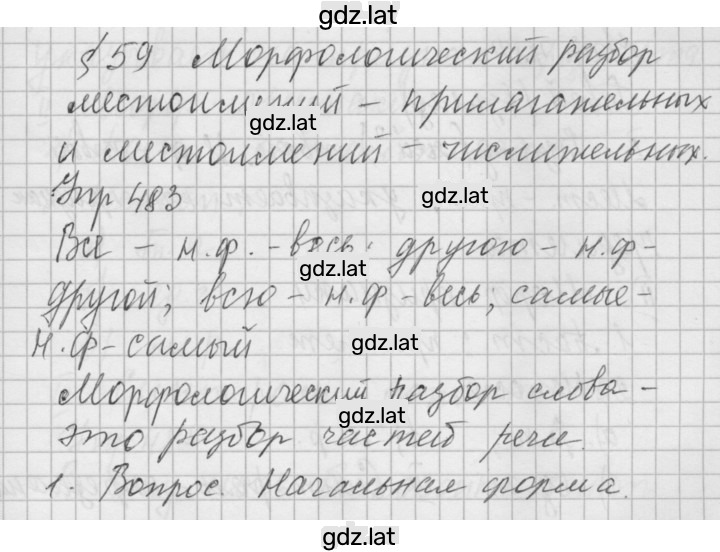 gdz.lat
§ 59 Морфологический разбор
местоимений – прилагательных
gdz.lat
и местоимений – числительных.
Упр 483
gdz.lat
Все – н.ф. - весь; другою – н.ф-
gdz.lat
другой; всю – н.ф - весь; самые -
н.ф - самый
gdz.lat
Морфологический разбор слова -
gdz.lat
это разбор частей речи.
1. Вопрос. Начальная форма.
gdz.lat